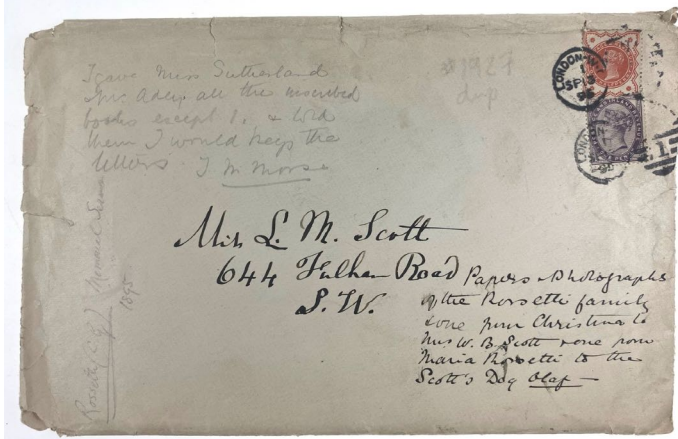 I gave Miss Sutherland
Mr. Adey all the inscribed
books except 1. & told
them I would keep the
letters T M Morse
#1927
dup
LONDON·W
1
SP 13
95
LONDON
1
Miss L. M. Scott
644 Fulham Road
S.W.
Papers & Photographs
of the Rossetti family
& one from Christina to
Mrs W. B. Scott & one from
Maria Rossetti to the
Scott's Dog Olaf
Rossetti, C. G.
1895